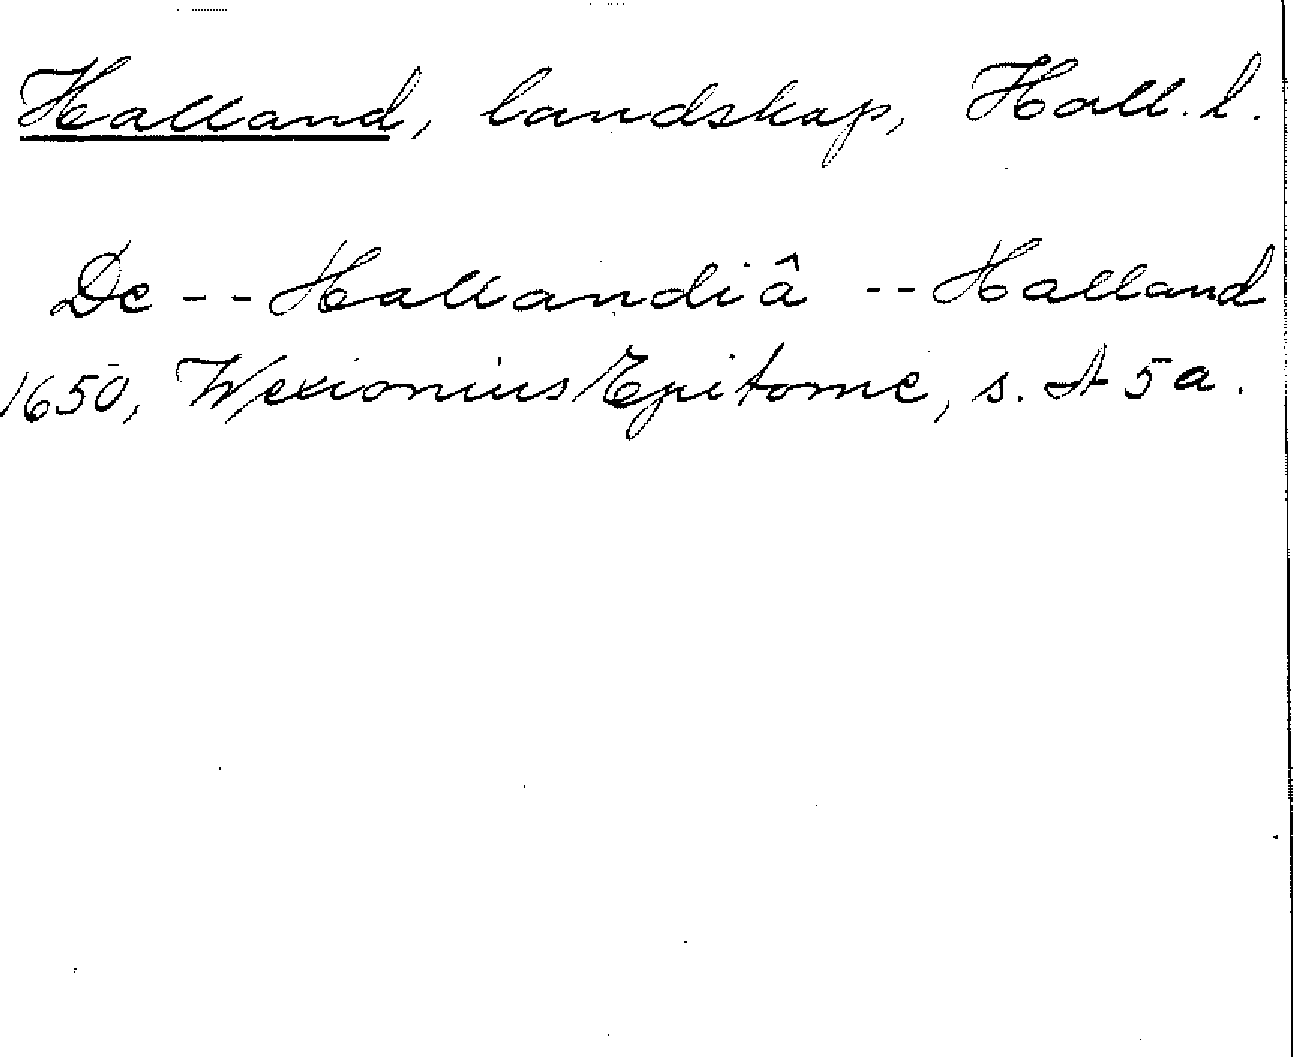 Halland, landskap, Hall. l.
De -- Hallandiâ -- Halland
1650, Wexionius Epitome, s. A 5a.